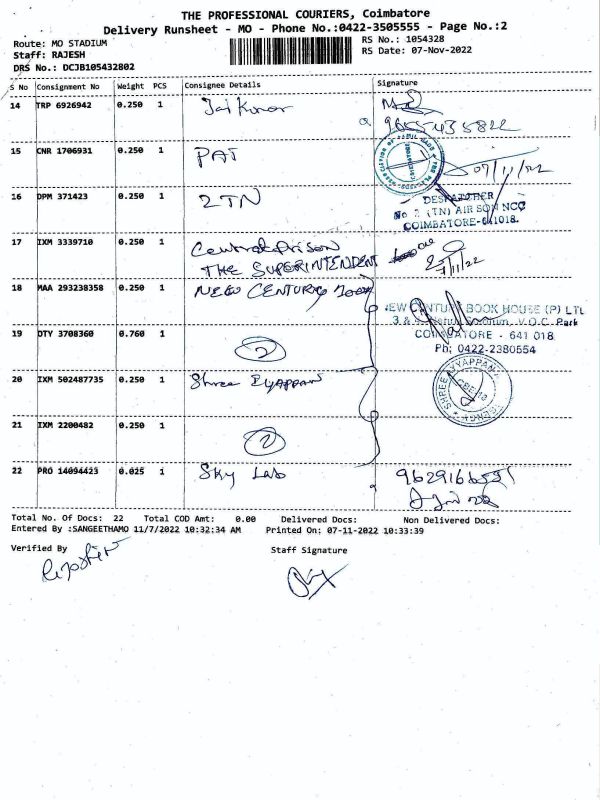 THE PROFESSIONAL COURIERS, Coimbatore
Delivery Runsheet - MO - Phone No.:0422-3505555 - Page No.:2
Route: MO STADIUM
RS No.: 1054328
Staff: RAJESH
RS Date: 07-Nov-2022
DRS No.: DCJB105432802
S No Consignment No Weight PCS Consignee Details Signature
14 TRP 6926942 0.250 1 Jai Kumar
9655435822
15 CNR 1706931 0.250 1 PAT 07/11/22
16 DPM 371423 0.250 1 2TN
DESPATCHER
No 2 (TN) AIR SQN NCC
COIMBATORE-641018.
17 IXM 3339710 0.250 1 Central Prison
THE SUPERINTENDENT
18 MAA 293238358 0.250 1 NEW CENTURY
NEW CENTURY BOOK HOUSE (P) LTD
Stadium, V.O.C. Park
19 DTY 3708360 0.760 1 2
COIMBATORE - 641 018
Ph: 0422-2380554
20 IXM 502487735 0.250 1 Shree Iyappan
SHREE AYYAPPAN
21 IXM 2200482 0.250 1 2
22 PRO 14094423 0.025 1 Sky Lab
Total No. Of Docs: 22 Total COD Amt: 0.00 Delivered Docs: Non Delivered Docs:
Entered By :SANGEETHAMO 11/7/2022 10:32:34 AM Printed On: 07-11-2022 10:33:39
Verified By Staff Signature